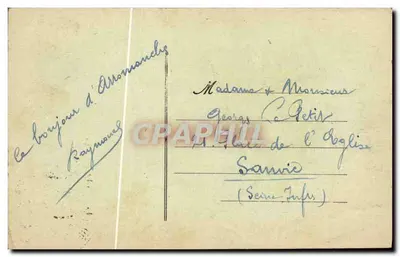 Le bonjour d'Arromanches
Raymond
Madame & Monsieur
Georges Le Petit
Place de l'Eglise
Sanvic
(Seine-Infre)
CPAPHIL